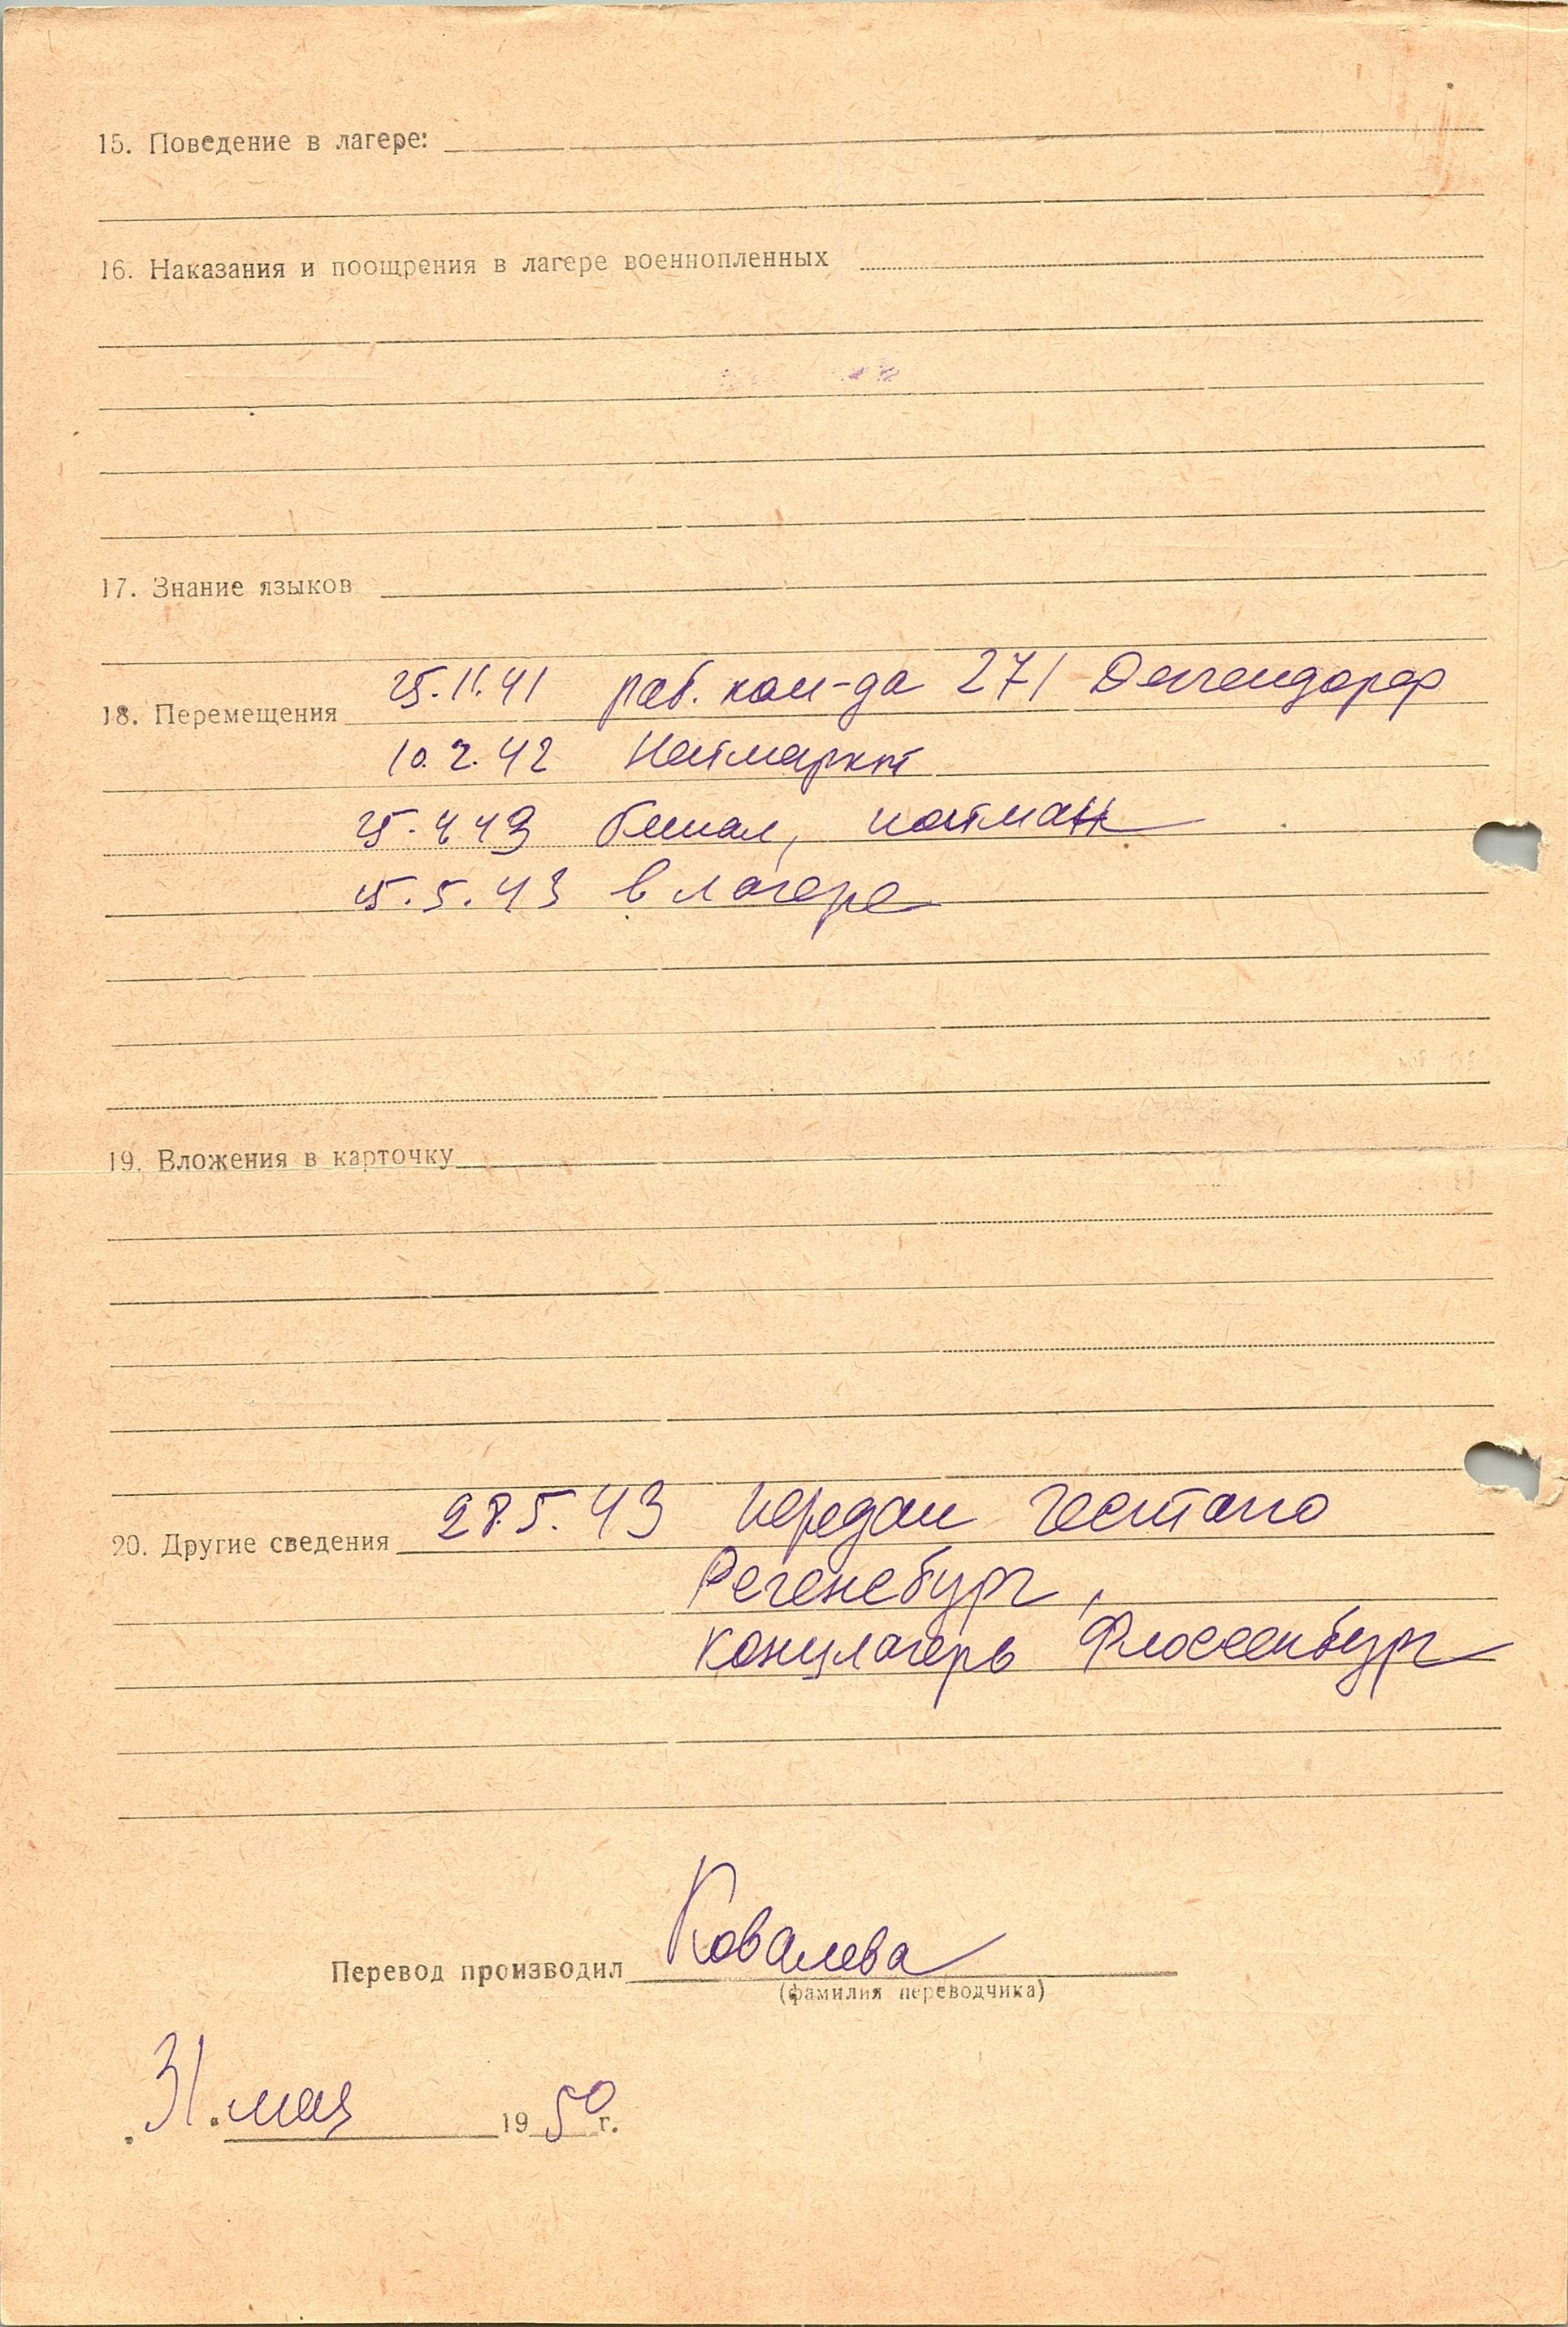 15. Поведение в лагере:
16. Наказания и поощрения в лагере военнопленных
17. Знание языков
25.11.41 раб. ком-да 271 Деггендорф
18. Перемещения
10.2.42 Натмаркт
25.4 43 бежал, пойман
15.5.43 в лагере
19. Вложения в карточку
28.5.43 передан гестапо
20. Другие сведения
Регенсбург,
концлагерь Флоссенбург
Ковалева
Перевод производил
(фамилия переводчика)
31. мая 1950 г.